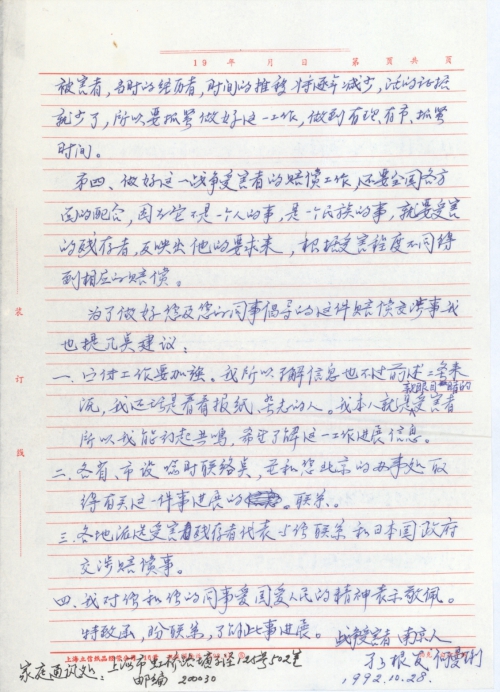 19 年 月 日 第 页 共 页
被害者,当时的经历者,时间的推移将逐年减少,活的证据
就少了,所以要抓紧做好这一工作,做到有现有市、抓紧
时间。
第四、做好这一战争受害者的赔偿工作,还要全国各方
面的配合,因为它不是一个人的事,是一个民族的事,就要受害
的残存者,反映出他的要求来,根据受害程度不同得
到相应的赔偿。
为了做好您及您的同事倡导的这件赔偿交涉事我
也提几点建议:
一、宣传工作要加强。我所以了解信息也不过前述二条来
源,我还均是看看报纸、杂志的人。我本人就是受害者
所以我能引起共鸣,希望了解这一工作进展信息。
二、各省、市设临时联络员,並和您北京的办事处取
得有关这一件事进展的联系。
三、各地派送受害残存者代表与您联系和日本国政府
交涉赔偿事。
四、我对您和您的同事爱国爱人民的精神表示敬佩。
特致函,盼联系,了解此事进展。
战争受害者 南京人
1992.10.28.
家庭通讯处:上海市虹桥
邮编 200030